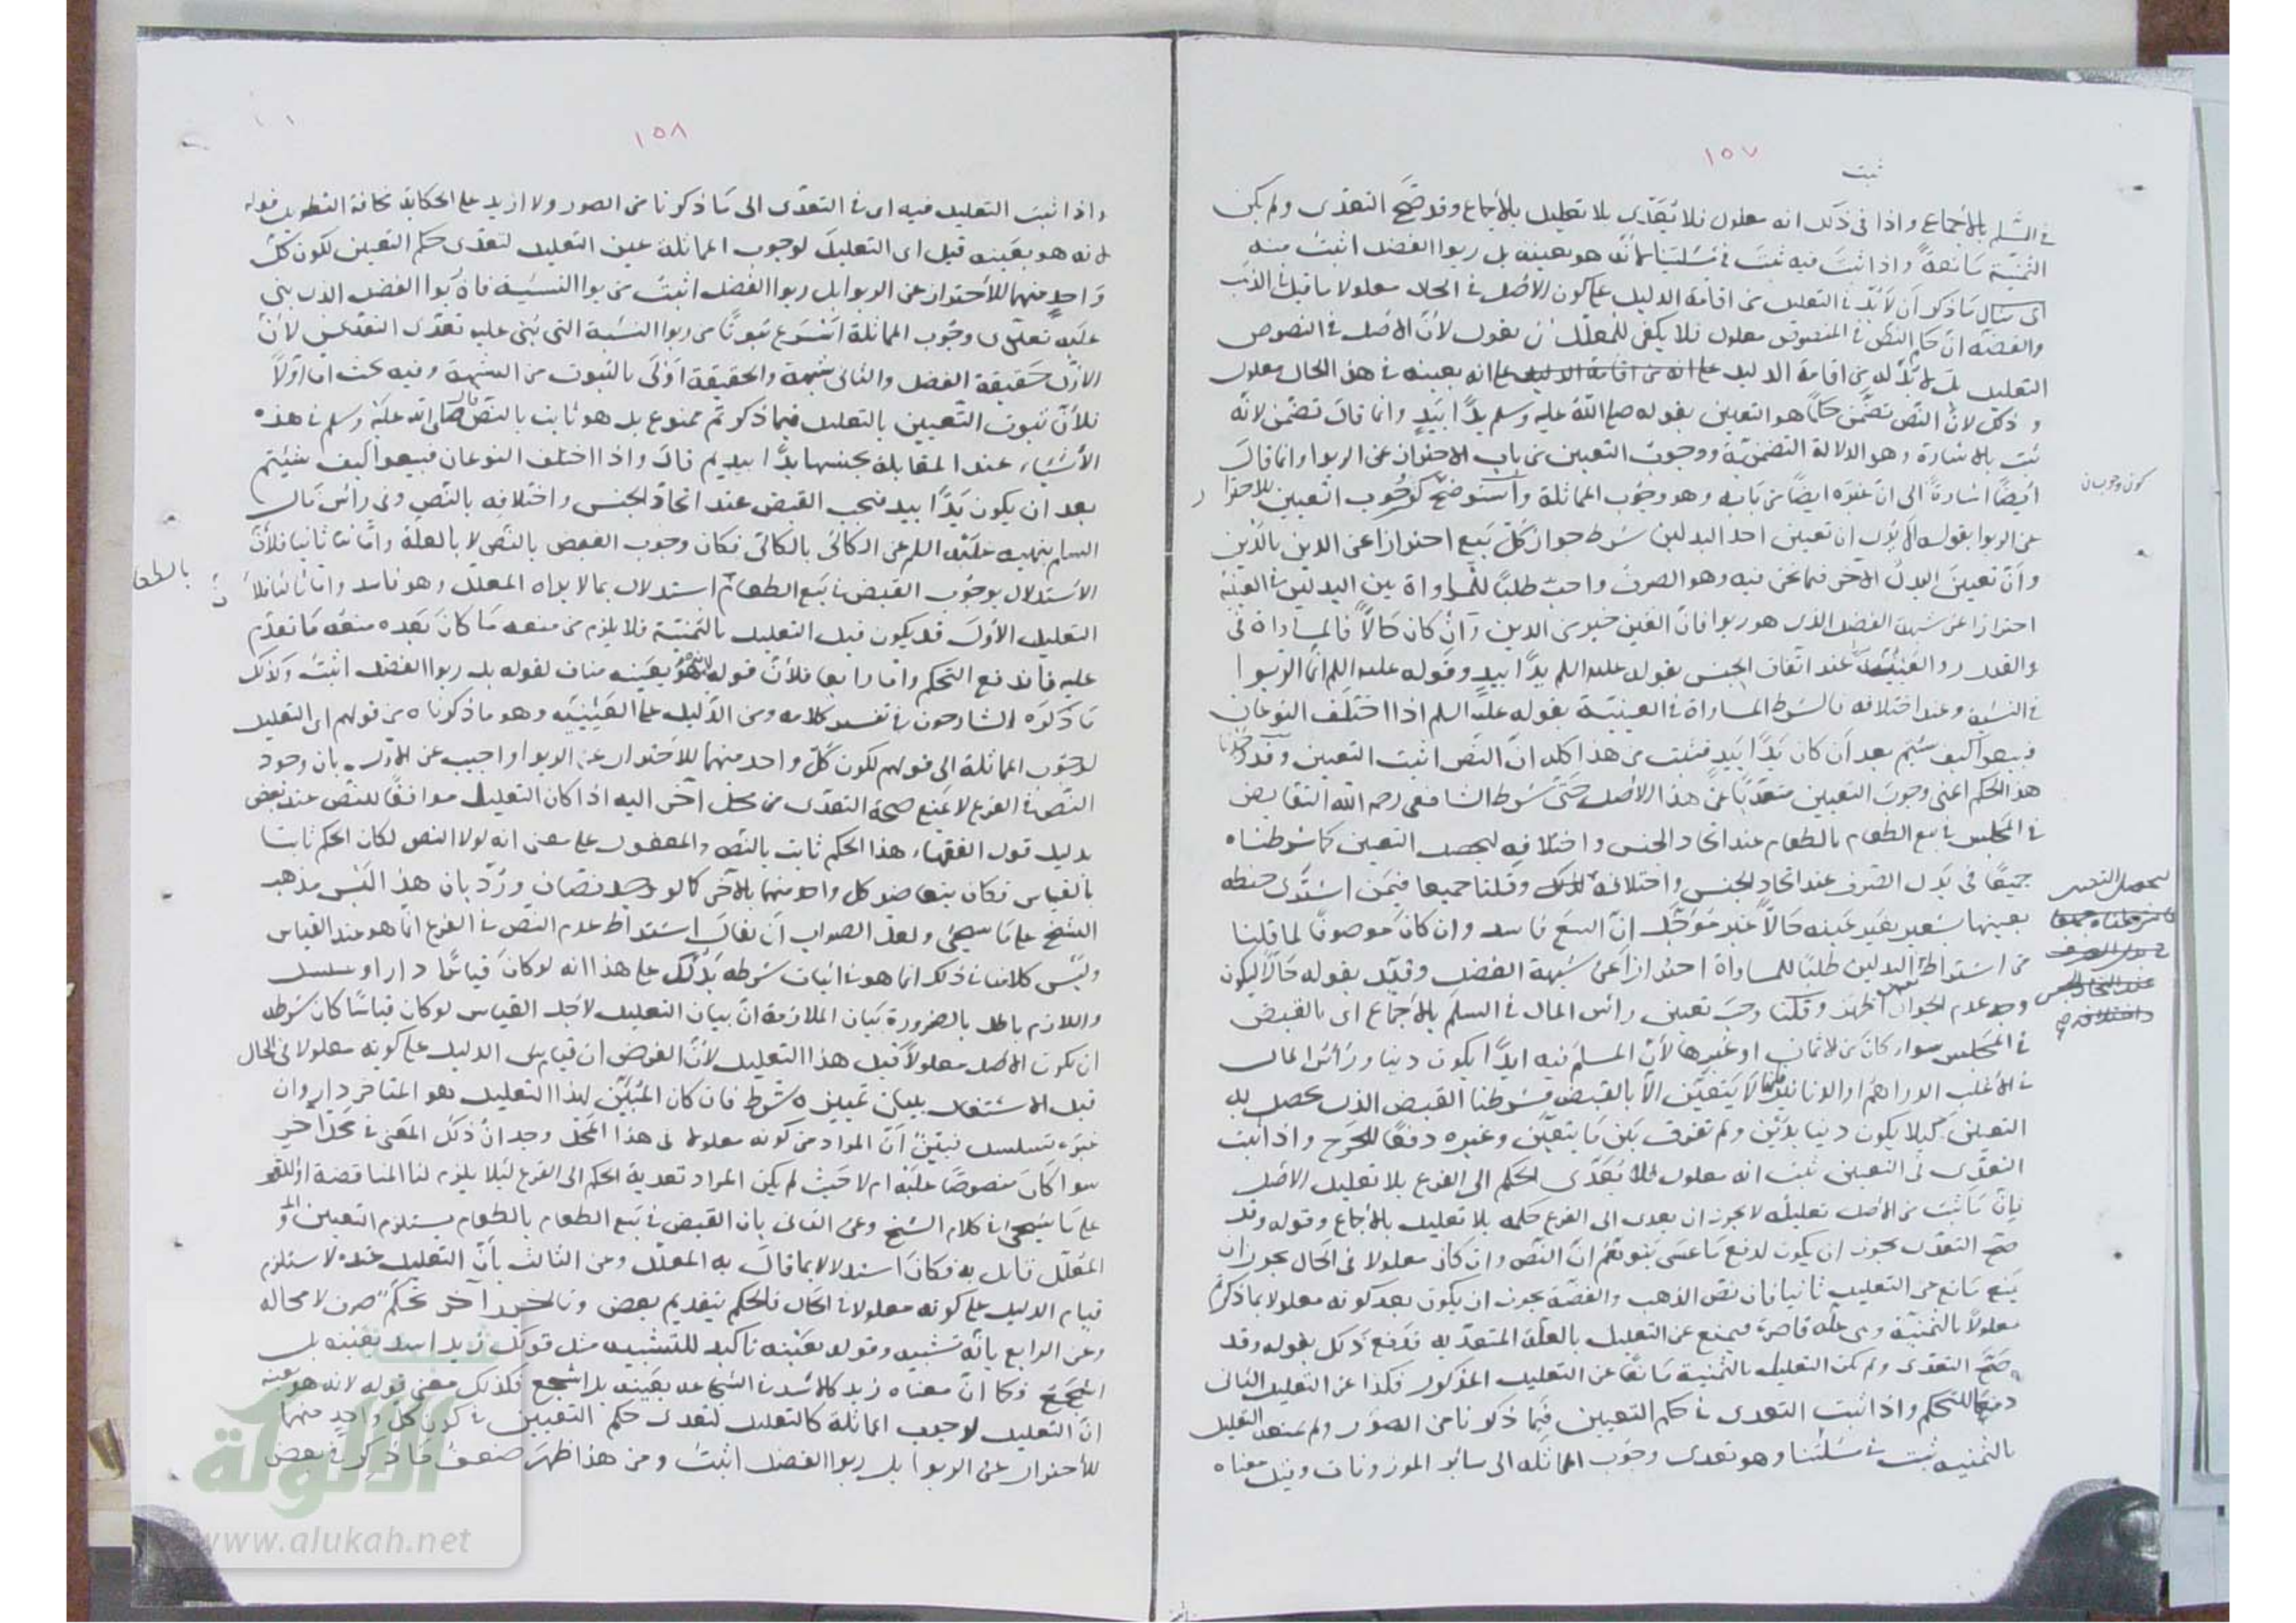 ١٥٧
ثبت
في السلم بالاجماع واذا في ذلك انه معلول فلا تعدى بلا تعليل بالاجماع وقد صح التعدى ولم يكن
الثمنية مانعة واذا ثبت فيه ثبت في مسئلتنا لانه هو بعينه بل ربوا الفضل اثبت منه
ما ذكر ان لابد في التعليل من اقامة الدليل على كون الاصل في الحال معلولا ما قيل في الذهب
والفضة ان حكم النص في المنصوص معلول فلا يكفى للمعلل ان يقول لان الاصل في النصوص
التعليل بل لابد له من اقامة الدليل على انه بعينه في هذا الحال معلول
وذلك لان النص تضمن حكما هو التعيين بقوله صلى الله عليه وسلم يدا بيد وانما قال تضمن لانه
ثبت بالاشارة وهو الدلالة التضمنية ووجوب التعيين من باب الاحتراز عن الربوا وانما قال
ايضا اشارة الى ان غيره ايضا من بابه وهو وجوب المماثلة واستوضح كوجوب التعيين للاحتراز
كون وجوبان
عن الربوا بقوله الا يرى ان تعيين احد البدلين شرط جواز كل بيع احترازا عن الدين بالدين
وان تعيين البدل الآخر فيما نحن فيه وهو الصرف واجب طلبا للمساواة بين البدلين في العينية
احترازا عن شبهة الفضل الذى هو ربوا فان العين خير من الدين وان كان حالا فالمساواة في
والقدر والعينية عند اتفاق الجنس بقوله عليه السلم يدا بيد وقوله عليه السلم انما الربوا
في النسية وعند اختلافه بالشرط المساراة في العينية بقوله عليه السلم اذا اختلف النوعان
فبيعوا كيف شئتم بعد ان كان يدا بيد فثبت من هذا كله ان النص اثبت التعيين وقد وجدنا
هذا الحكم اعنى وجوب التعيين متعديا عن هذا الاصل حتى شرط الشافعى رحمه الله التقابض
في المجلس في بيع الطعام بالطعام عند اتحاد الجنس واختلافه ليحصل التعيين كما شرطناه
جميعا في بدل الصرف عند اتحاد الجنس واختلافه لذلك وقلنا جميعا فيمن اشترى حنطة
ليحصل التعيين
كما شرطناه جميعا
في بدل الصرف
عند اتحاد الجنس
واختلافه صح
بعينها بشعير بغير عينه حالا غير مؤجل ان البيع فاسد وان كان موصوفا لما قلنا
من اشتراط البدلين طلبا للمساواة احترازا عن شبهة الفضل وقيد بقوله حالا ليكون
وجه عدم الجواز اظهر وقلنا وجب تعيين رأس المال في السلم بالاجماع اى بالقبض
في المجلس سواء كان من الاثمان او غيرها لان المسلم فيه ابدا يكون دينا ورأس المال
في الاغلب الدراهم او الدنانير لا يتعين الا بالقبض فشرطنا القبض الذى يحصل به
التعيين كيلا يكون دينا بدين ولم نفرق بين ما يتعين وغيره دفعا للحرج واذا ثبت
التعدى في التعيين ثبت انه معلول فلا يتعدى الحكم الى الفرع بلا تعليل الاصل
بان ما ثبت من الاصل تعليله لا يجوز ان يعدى الى الفرع حكمه بلا تعليل بالاجماع وقوله وقد
صح التعدى يجوز ان يكون لدفع ما عسى يتوهم ان النص وان كان معلولا في الحال يجوز ان
يمنع مانع عن التعليل ثانيا فان نص الذهب والفضة يجوز ان يكون بعد كونه معلولا بما ذكرتم
معلولا بالثمنية وهى علة قاصرة فيمنع عن التعليل بالعلة المتعدية فدفع ذلك بقوله وقد
صح التعدى ولم يكن التعليل بالثمنية مانعا عن التعليل المذكور فكذا عن التعليل الثانى
دفعا للتحكم واذا ثبت التعدى في حكم التعيين فيما ذكرنا من الصور ولم يمنعه التعليل
بالثمنية ثبت في مسئلتنا وهو تعدى وجوب المماثلة الى سائر الموزونات وقيل معناه
١٥٨
واذا ثبت التعليل فيه اى في التعدى الى ما ذكرنا من الصور ولا ازيد على الحكاية مخافة التطويل قوله
لانه هو بعينه قيل اى التعليل لوجوب المماثلة عين التعليل لتعدى حكم التعيين لكون كل
واحد منهما للاحتراز عن الربوا بل ربوا الفضل اثبت من ربوا النسية فان ربوا الفضل الذى بنى
عليه تعدى وجوب المماثلة اسرع ثبوتا من ربوا النسية التى بنى عليه تعدى التعيين لان
الاول حقيقة الفضل والثانى شبهة والحقيقة اولى بالثبوت من الشبهة وفيه بحث اما اولا
فلان ثبوت التعيين بالتعليل فيما ذكر ثم ممنوع بل هو ثابت بالنص قال صلى الله عليه وسلم في هذه
الاشياء عند المقابلة بجنسها يدا بيد ثم قال واذا اختلف النوعان فبيعوا كيف شئتم
بعد ان يكون يدا بيد فيجب القبض عند اتحاد الجنس واختلافه بالنص وفى رأس مال
السلم بنهيه عليه السلم عن الكالئ بالكالئ فكان وجوب القبض بالنص لا بالعلة واما ثانيا فلان
الاستدلال بوجوب القبض في بيع الطعام استدلال بما لا يراه المعلل وهو فاسد واما ثالثا فلان
بالطعا
التعليل الاول قد يكون قبل التعليل بالثمنية فلا يلزم من منعه ما كان بعده منعه ما تقدم
عليه فاندفع التحكم واما رابعا فلان قوله لانه هو بعينه مناف لقوله بل ربوا الفضل اثبت وكذلك
ما ذكره الشارحون في تفسير كلامه ومن الدليل على العينية وهو ما ذكرناه من قولهم اى التعليل
لوجوب المماثلة الى قولهم لكون كل واحد منهما للاحتراز عن الربوا واجيب عن الاول بان وجود
النص في الفرع لا يمنع صحة التعدى من محل آخر اليه اذا كان التعليل موافقا للنص عند بعض
بدليل قول الفقهاء هذا الحكم ثابت بالنص والمعقول على معنى انه لولا النص لكان الحكم ثابتا
بالقياس فكان يتعاضد كل واحد منهما بالآخر كما لو وجد نصان ورد بان هذا ليس مذهب
الشيخ على ما سيجئ ولعل الصواب ان يقال اشتراط عدم النص في الفرع انما هو عند القياس
وليس كلامنا في ذلك انما هو في اثبات شرطه يدلك على هذا انه لو كان قياسا دار او تسلسل
واللازم باطل بالضرورة بيان الملازمة ان بيان التعليل لاجل القياس لو كان قياسا كان شرطه
ان يكون الاصل معلولا قبل هذا التعليل لان الفرض ان قيام الدليل على كونه معلولا في الحال
قبل الاشتغال ببيان تمييزه شرط فان كان المبين لهذا التعليل هو المتاخر دار وان
غيره تسلسل فتبين ان المراد من كونه معلولا في هذا المحل وجد ان ذلك المعنى في محل آخر
سوا كان منصوصا عليه ام لا حيث لم يكن المراد تعدية الحكم الى الفرع لئلا يلزم لنا المناقضة
على ما سيجئ في كلام الشيخ وعن الثانى بان القبض في بيع الطعام بالطعام يستلزم التعيين
المعلل قائل به فكان استدلالا بما قال به المعلل وعن الثالث بان التعليل عنده لا يستلزم
قيام الدليل على كونه معلولا في الحال فالحكم بتقديم بعض وتاخير آخر تحكم صرف لا محالة
وعن الرابع بانه تشبيه وقوله بعينه تاكيد للتشبيه مثل قولك زيد اسد بعينه بل
اشجع فكما ان معناه زيد كالاسد في الشجاعة بعينه بل اشجع فكذلك معنى قوله لانه هو بعينه
ان التعليل لوجوب المماثلة كالتعليل لتعدى حكم التعيين في كون كل واحد منهما
للاحتراز عن الربوا بل ربوا الفضل اثبت ومن هذا ظهر ضعف ما ذكر في بعض
شبكة
الألوكة
www.alukah.net